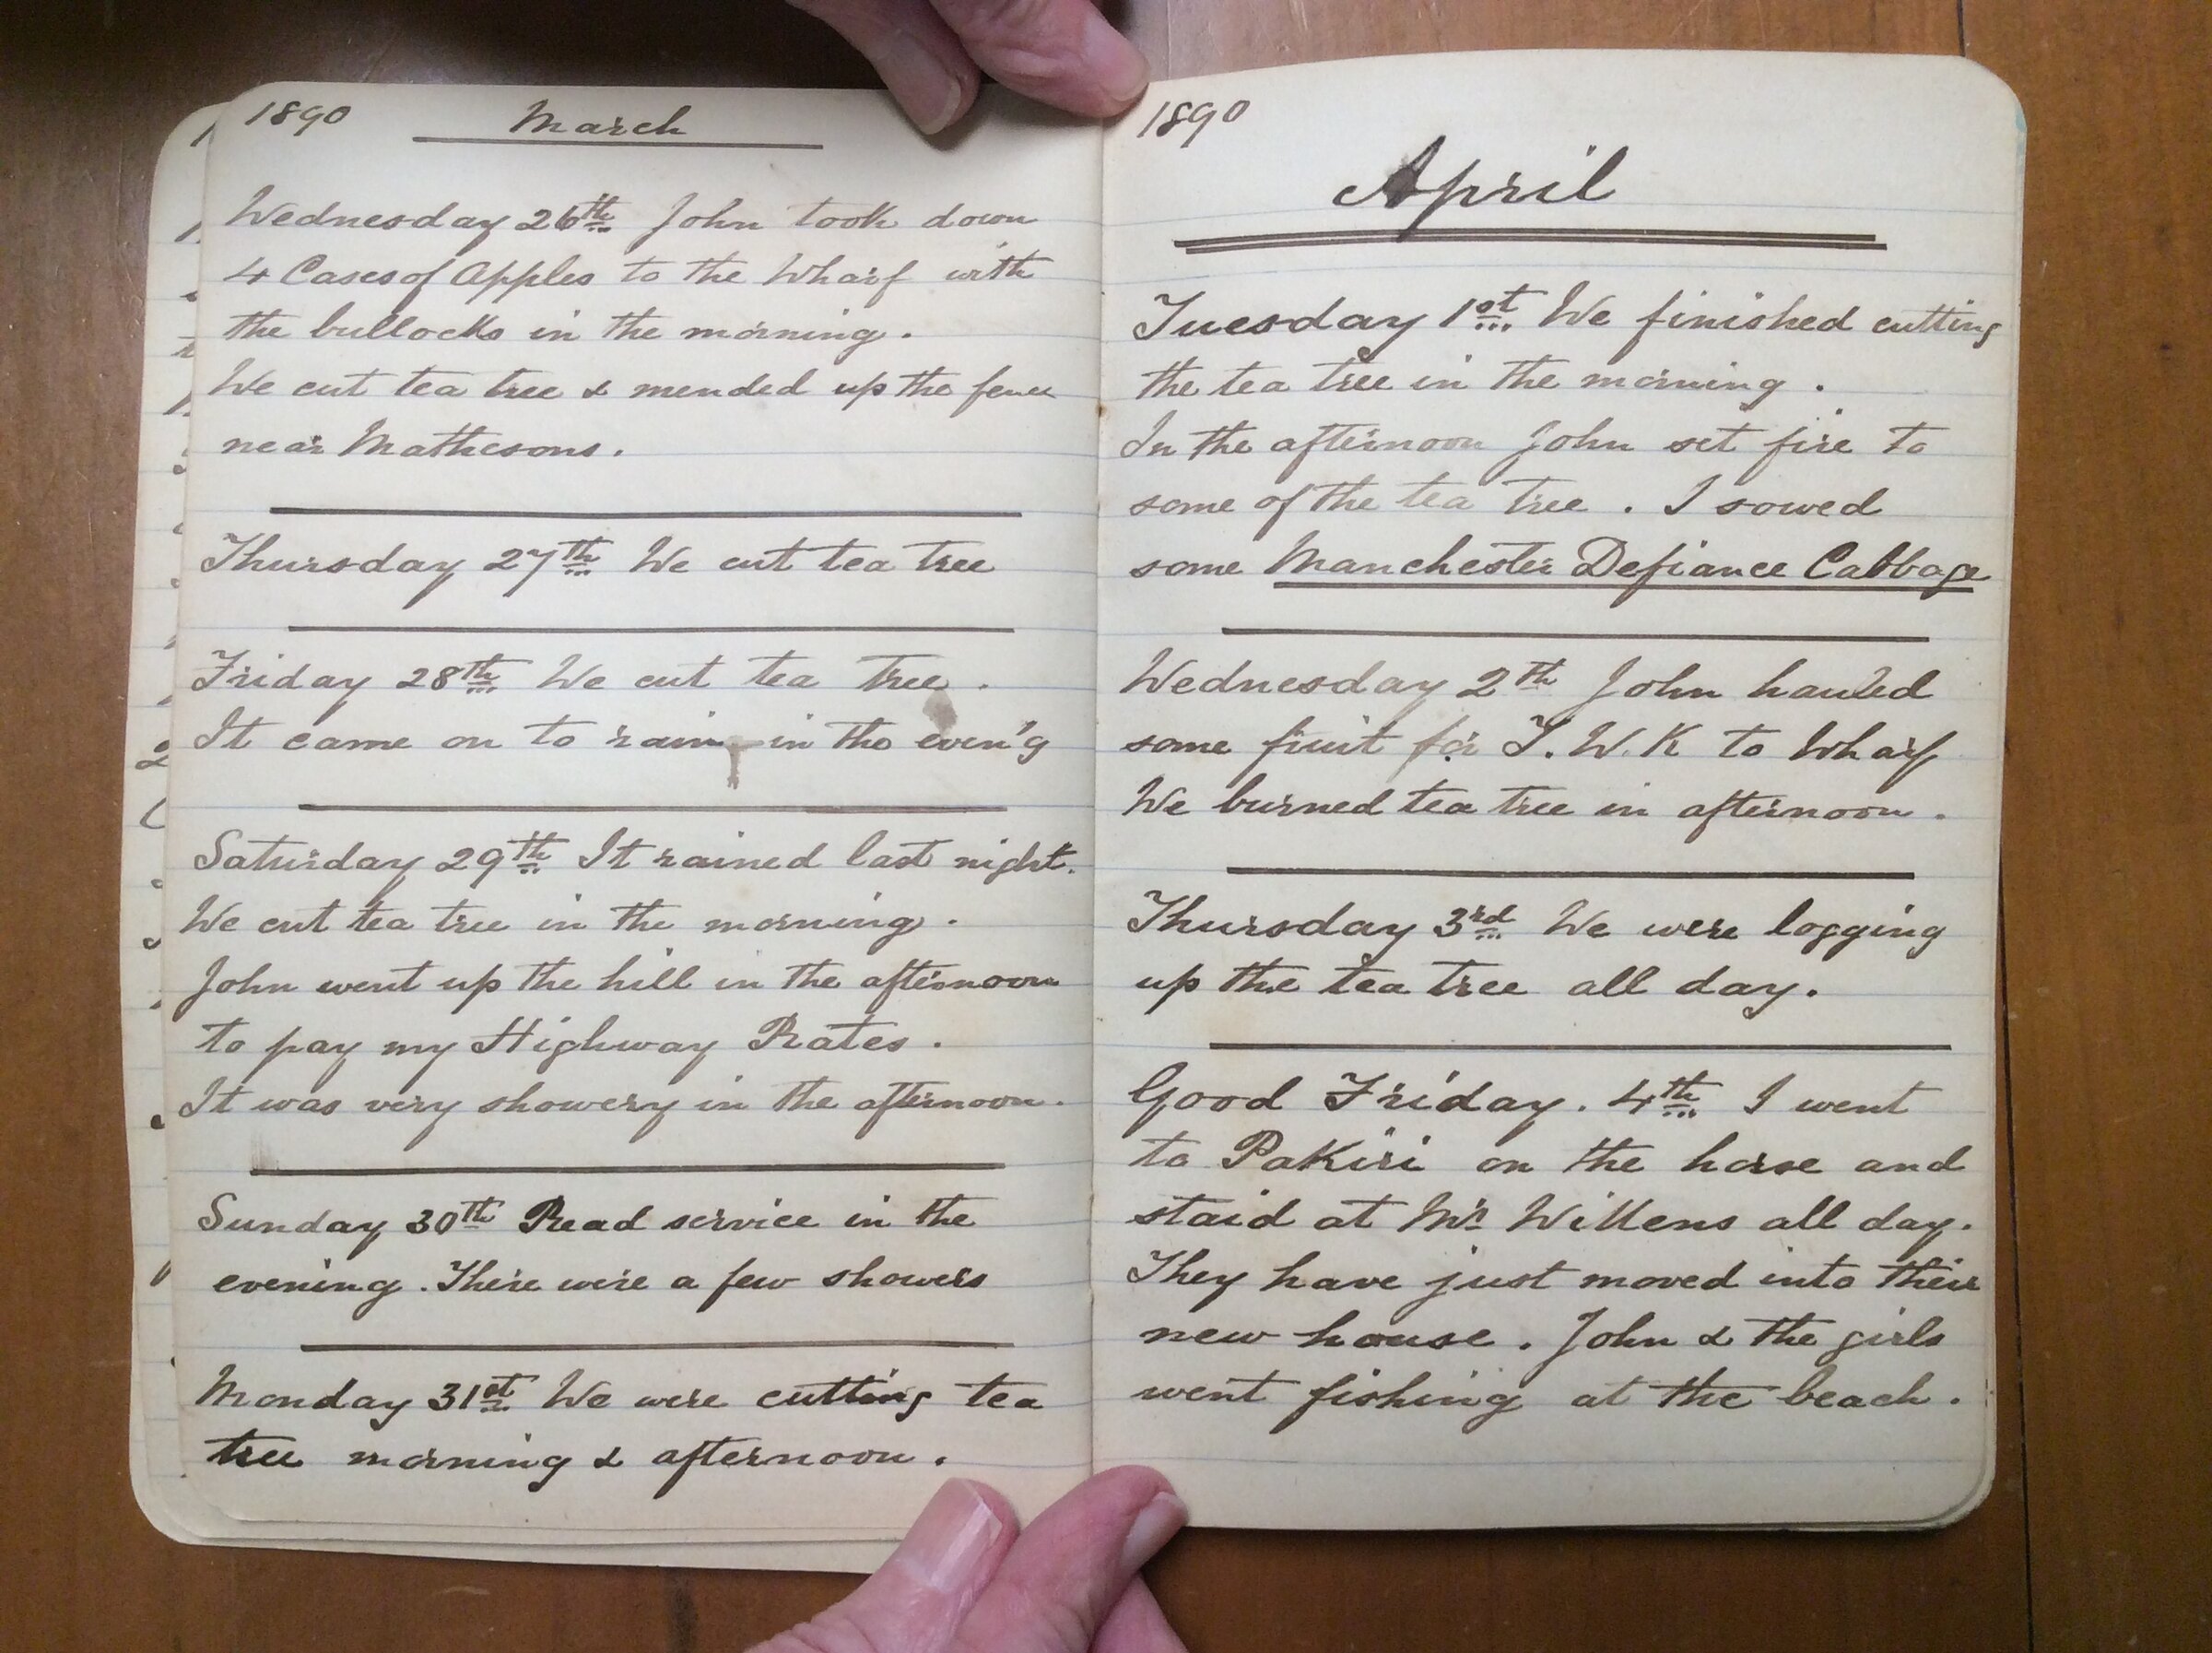 1890 March
Wednesday 26th John took down
4 Cases of Apples to the Wharf with
the bullocks in the morning.
We cut tea tree & mended up the fence
near Mathesons.
Thursday 27th We cut tea tree
Friday 28th We cut tea tree.
It came on to rain in the even'g
Saturday 29th It rained last night.
We cut tea tree in the morning.
John went up the hill in the afternoon
to pay my Highway Rates.
It was very showery in the afternoon.
Sunday 30th Read service in the
evening. There were a few showers
Monday 31st We were cutting tea
tree morning & afternoon.
1890
April
Tuesday 1st We finished cutting
the tea tree in the morning.
In the afternoon John set fire to
some of the tea tree. I sowed
some Manchester Defiance Cabbage
Wednesday 2th John hauled
some fruit for T.W.K to Wharf
We burned tea tree in afternoon.
Thursday 3rd We were logging
up the tea tree all day.
Good Friday. 4th I went
to Pakiri on the horse and
staid at Mr Wittens all day.
They have just moved into their
new house. John & the girls
went fishing at the beach.